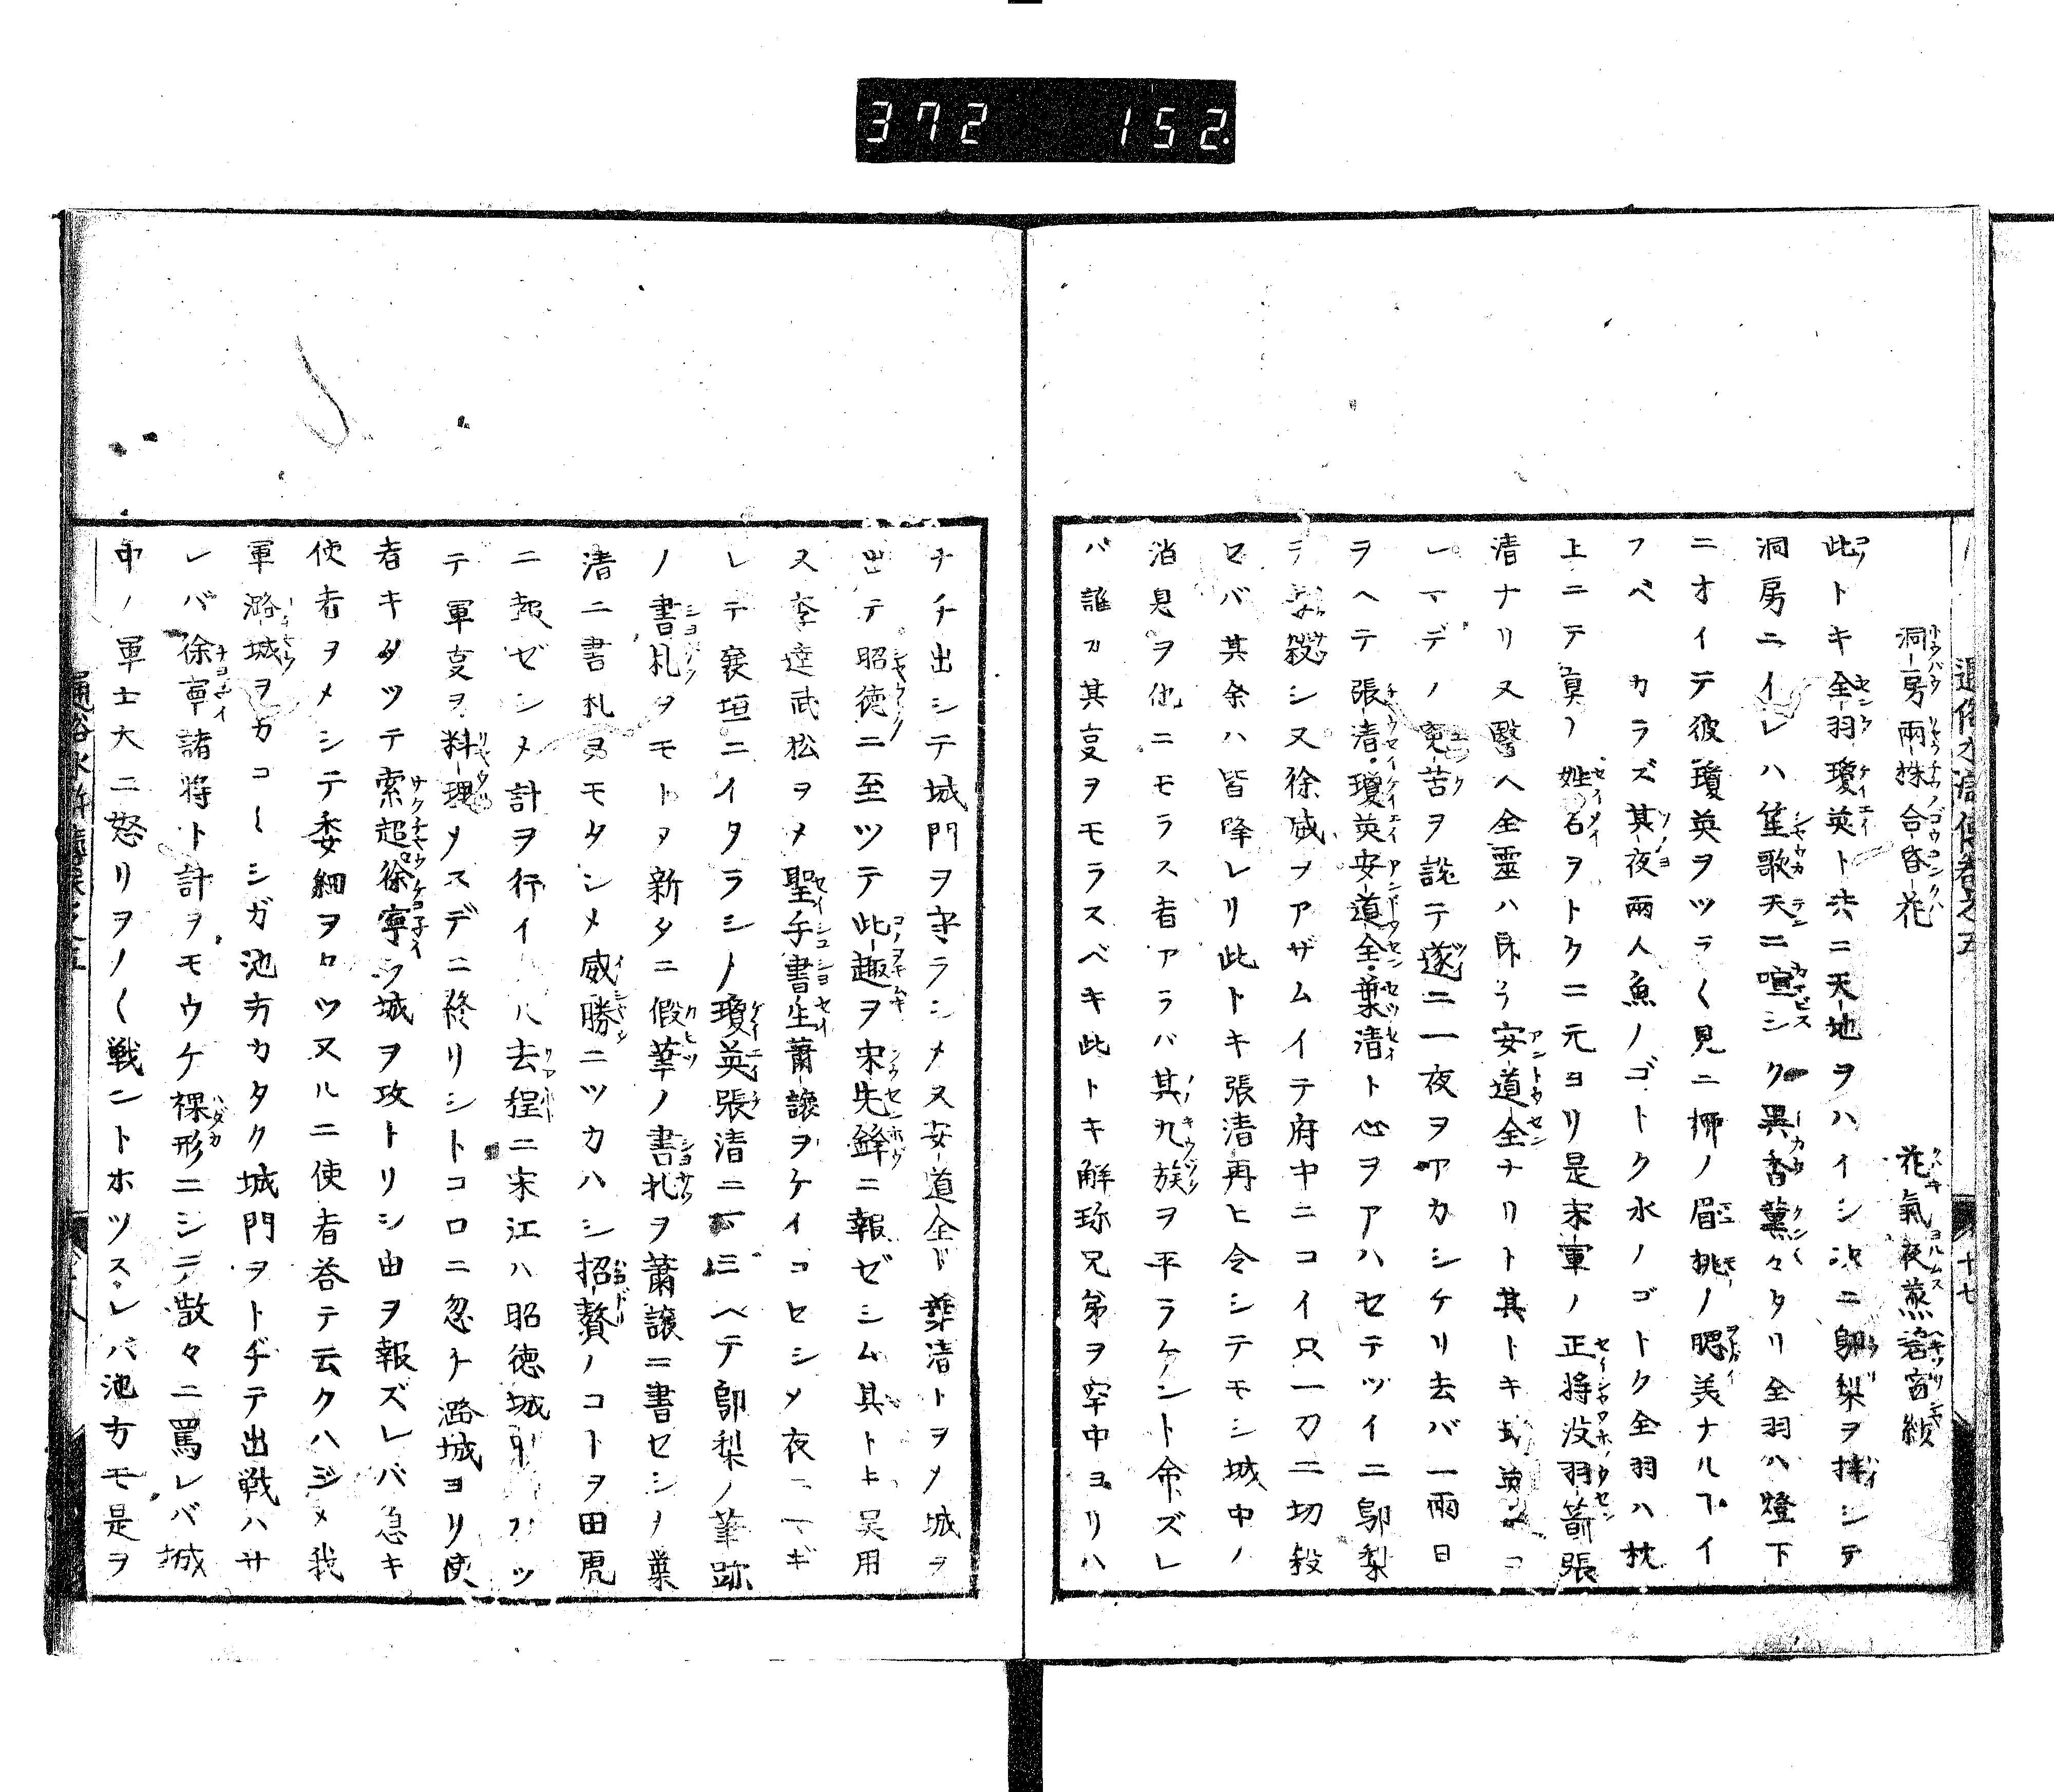 372 152
洞房兩株合昏花 花氣夜蒸
此トキ全羽瓊英ト共ニ天地ヲハイシ次ニ鄔梨ヲ拝シテ
洞房ニイレハ笙歌天ニ喧シク異香薫々タリ全羽ハ燈下
ニオイテ彼瓊英ヲツラ〱見ニ柳ノ眉桃ノ腮美ナルコイ
フベカラズ其夜兩人魚ノゴトク水ノゴトク全羽ハ枕
上ニテ真ノ姓名ヲトクニ元ヨリ是宋軍ノ正将没羽箭張
清ナリ又醫ヘ全靈ハ即チ安道全ナリト其トキ瓊英モコ
レマデノ寃苦ヲ說テ遂ニ一夜ヲアカシケリ去バ一兩日
ヲヘテ張清瓊英安道全葉清ト心ヲアハセテツイニ鄔梨
ヲ毒殺シ又徐威ヲアザムイテ府中ニコイ只一刀ニ切殺
セバ其余ハ皆降レリ此トキ張清再ヒ令シテモシ城中ノ
消息ヲ他ニモラス者アラバ其九族ヲ平ラケント命ズレ
バ誰カ其叓ヲモラスベキ此トキ解珎兄弟ヲ牢中ヨリハ
ナチ出シテ城門ヲ守ラシメ又安道全ト葉清トヲメ城ヲ
出テ昭徳ニ至ツテ此趣ヲ宋先鋒ニ報ゼシム其トキ吴用
又李逵武松ヲメ聖手書生蕭譲ヲケイゴセシメ夜ニマギ
レテ襄垣ニイタラシム瓊英張清ニ ベテ鄔梨ノ筆跡
ノ書札ヲモトメ新タニ假筆ノ書札ヲ蕭譲ニ書セシメ葉
清ニ書札ヲモタシメ威勝ニツカハシ招贅ノコトヲ田虎
ニ報ゼシメ計ヲ行イ 去程ニ宋江ハ昭徳城
テ軍叓ヲ料理メスデニ終リシトコロニ忽チ潞城ヨリ使
者キタツテ索超徐寧ラ城ヲ攻トリシ由ヲ報ズレバ急キ
使者ヲメシテ委細ヲタツヌルニ使者荅テ云クハジメ我
軍潞城ヲカコミシガ池方カタク城門ヲトヂテ出戦ハサ
レバ徐寧諸将ト計ヲモウケ裸形ニシテ散々ニ罵レバ城
中ノ軍士大ニ怒リヲノ〱戦ントホツスレバ池方モ是ヲ